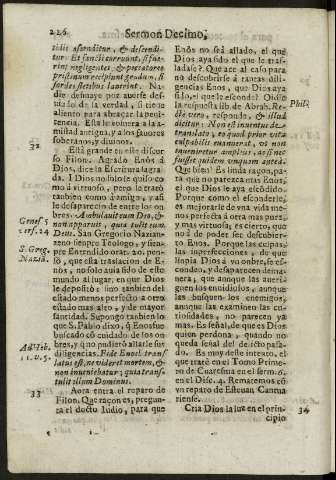 226 Sermon Decimo,
titit ascenditur, & descenditur
tur. Et sancti corruunt, si fuerint
negligentes, & peccatores
pristinum recipiunt gradum, si
sordes fletibus lauerint. Nadie
desmaye por auerse desuiado
de la verdad, si tiene
aliento para abraçar la penitencia.
Esta le boluera a la amistad
antigua, y a los fauores
soberanos y diuinos.
32
Està grande en este discurso
Filon. Agradò Enòs à
Dios, dice la Escritura sagrada.
I Dios no solo le quiso como
à virtuoso, pero le tratò
tambien como à amigo, y assi
le desapareciò de entre los malos.
Ambulauit cum Deo, &
non apparuit, quia tulit eum
Deus. San Gregorio Nazianzeno
siempre Teologo, y siempre
Entendido orat. 20. pensò,
que esta traslacion de Enòs,
no solo auia sido de este
mundo al lugar, en que Dios
le depositò; sino tambien del
estado menos perfecto a otro
estado mas alto, y de mayor
santidad. Supongo tambien lo
que S. Pablo dixo, q̃ Enos fue
buscado cõ cuidado de los ombres,
y q̃ no pudiero allarle sus
diligencias. Fide Enoch translatus
est, ne videret mortem, &
non inueniebatur; quia transtulit
illum Dominus.
Genes. 5
vers. 24
S. Greg.
Nazia.
Ad Heb.
11. v. 5.
33
Aora entra el reparo de
Filon. Que raçon es, pregunta
el docto Iudio, para que
Enòs no sea allado, el que
Dios aya sido el que le trasladase?
Que ace al caso para
no descubrirle à tantas diligencias
Enos, que Dios aya
sido, el que le escõde? Oid la
respuesta lib. de Abrah. Recte
vero, respondo, & illud
dicitur: Non est inuentus de
translato, eo quod prior vita
culpabilis euanuerit, ac si nec
fuisset quidem vnquam anteà.
Que bien! Es linda raçon, para
que no pareciera mas Enos,
el que Dios le aya escõdido.
Porque como el esconderle,
es mejorarle de vna vida menos
perfecta à otra mas pura,
y mas virtuosa, es cierto, que
no a de poder ser descubierto
Enos. Porque las culpas,
las inperfecciones, a de que
limpia Dios à vn onbre, se esconden,
y desaparecen de manera,
que aunque las anden
buscando embidiosos, aunque
las busquen los enemigos,
aunque las examinen las curiosidades,
no parecen ya
mas. Es señal, de que es Dios
quien perdona, quando no
queda señal del delito pasado.
Es muy deste intento, el
que tratè en el Tomo Primero
de Cuaresma en el serm. 6.
en el Disc. 4. Rematemos cõ vn
reparo de Esteuan Cantuariense.
Philò
Cria Dios la luz en el principio
34